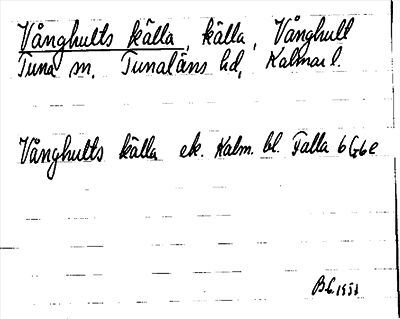 Vånghults källa, källa, Vånghult
Tuna sn, Tunaläns hd, Kalmar l.
Vånghults källa ek. Kalm. bl. Falla 6G6e